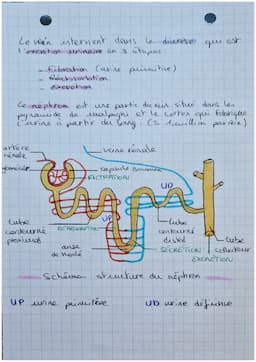 Le rein intervient dans la diurèse qui est
l'excrétion urinaire en 3 étapes :
- filtration (urine primitive)
- Réabsorbation
- excrétion
Le néphron est une partie du rein situé dans les
pyramide de malpighi et le cortex qui fabrique
l'urine a partir du sang. (1 million par rein)
artère
rénale
veine rénale
capsule Bowman
FILTRATION
UD
UP
tube
contourné
proximal
RÉABSORBTION
anse
de Henlé
tube
contourné
distal
SÉCRÉTION
tube
collecteur
EXCRÉTION
Schéma structure du néphron
UP urine primitive
UD urine définitive